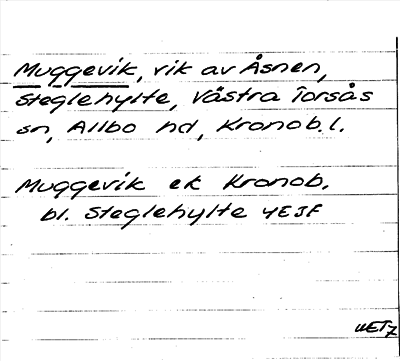 Muggevik, vik av Åsnen,
Steglehylte, Västra Torsås
sn, Allbo hd, Kronob.l.
Muggevik ek Kronob.
bl. Steglehylte 4EJF